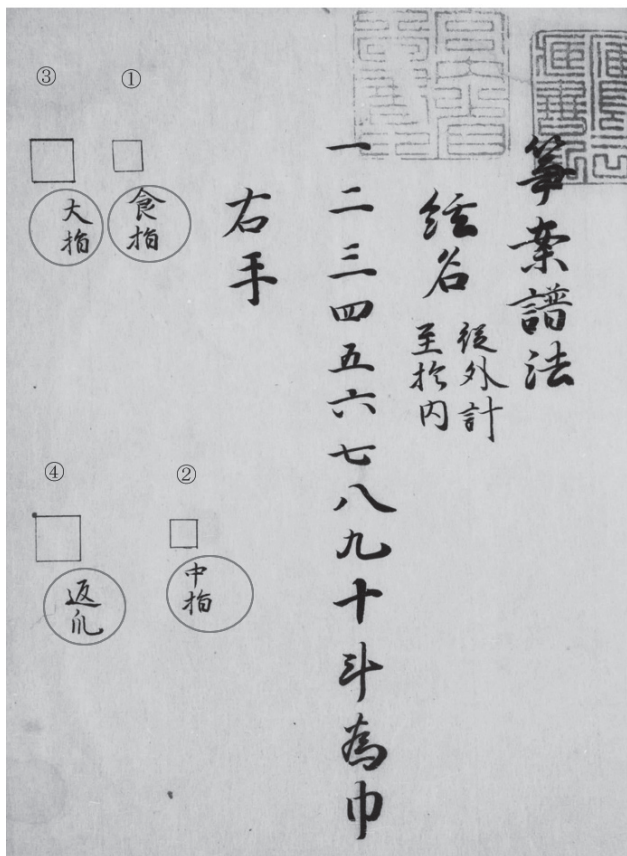 箏案譜法
絃名
從外計
至於内
一二三四五六七八九十斗為巾
右手
①
食指
②
中指
③
大指
④
返爪